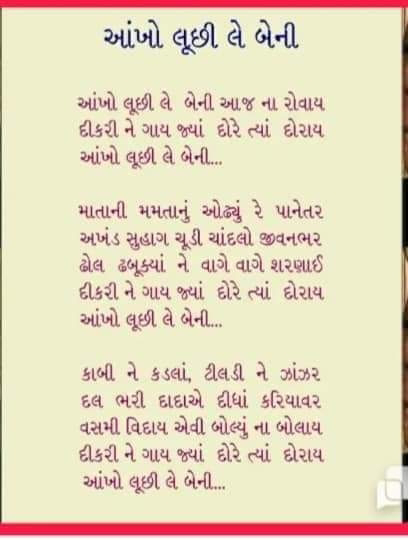 આંખો લૂછી લે બેની
આંખો લૂછી લે બેની આજ ના રોવાય
દીકરી ને ગાય જ્યાં દોરે ત્યાં દોરાય
આંખો લૂછી લે બેની...
માતાની મમતાનું ઓઢ્યું રે પાનેતર
અખંડ સુહાગ ચૂડી ચાંદલો જીવનભર
ઢોલ ઢબૂક્યાં ને વાગે વાગે શરણાઈ
દીકરી ને ગાય જ્યાં દોરે ત્યાં દોરાય
આંખો લૂછી લે બેની...
કાબી ને કડલાં, ટીલડી ને ઝાંઝર
દલ ભરી દાદાએ દીધાં કરિયાવર
વસમી વિદાય એવી બોલ્યું ના બોલાય
દીકરી ને ગાય જ્યાં દોરે ત્યાં દોરાય
આંખો લૂછી લે બેની...